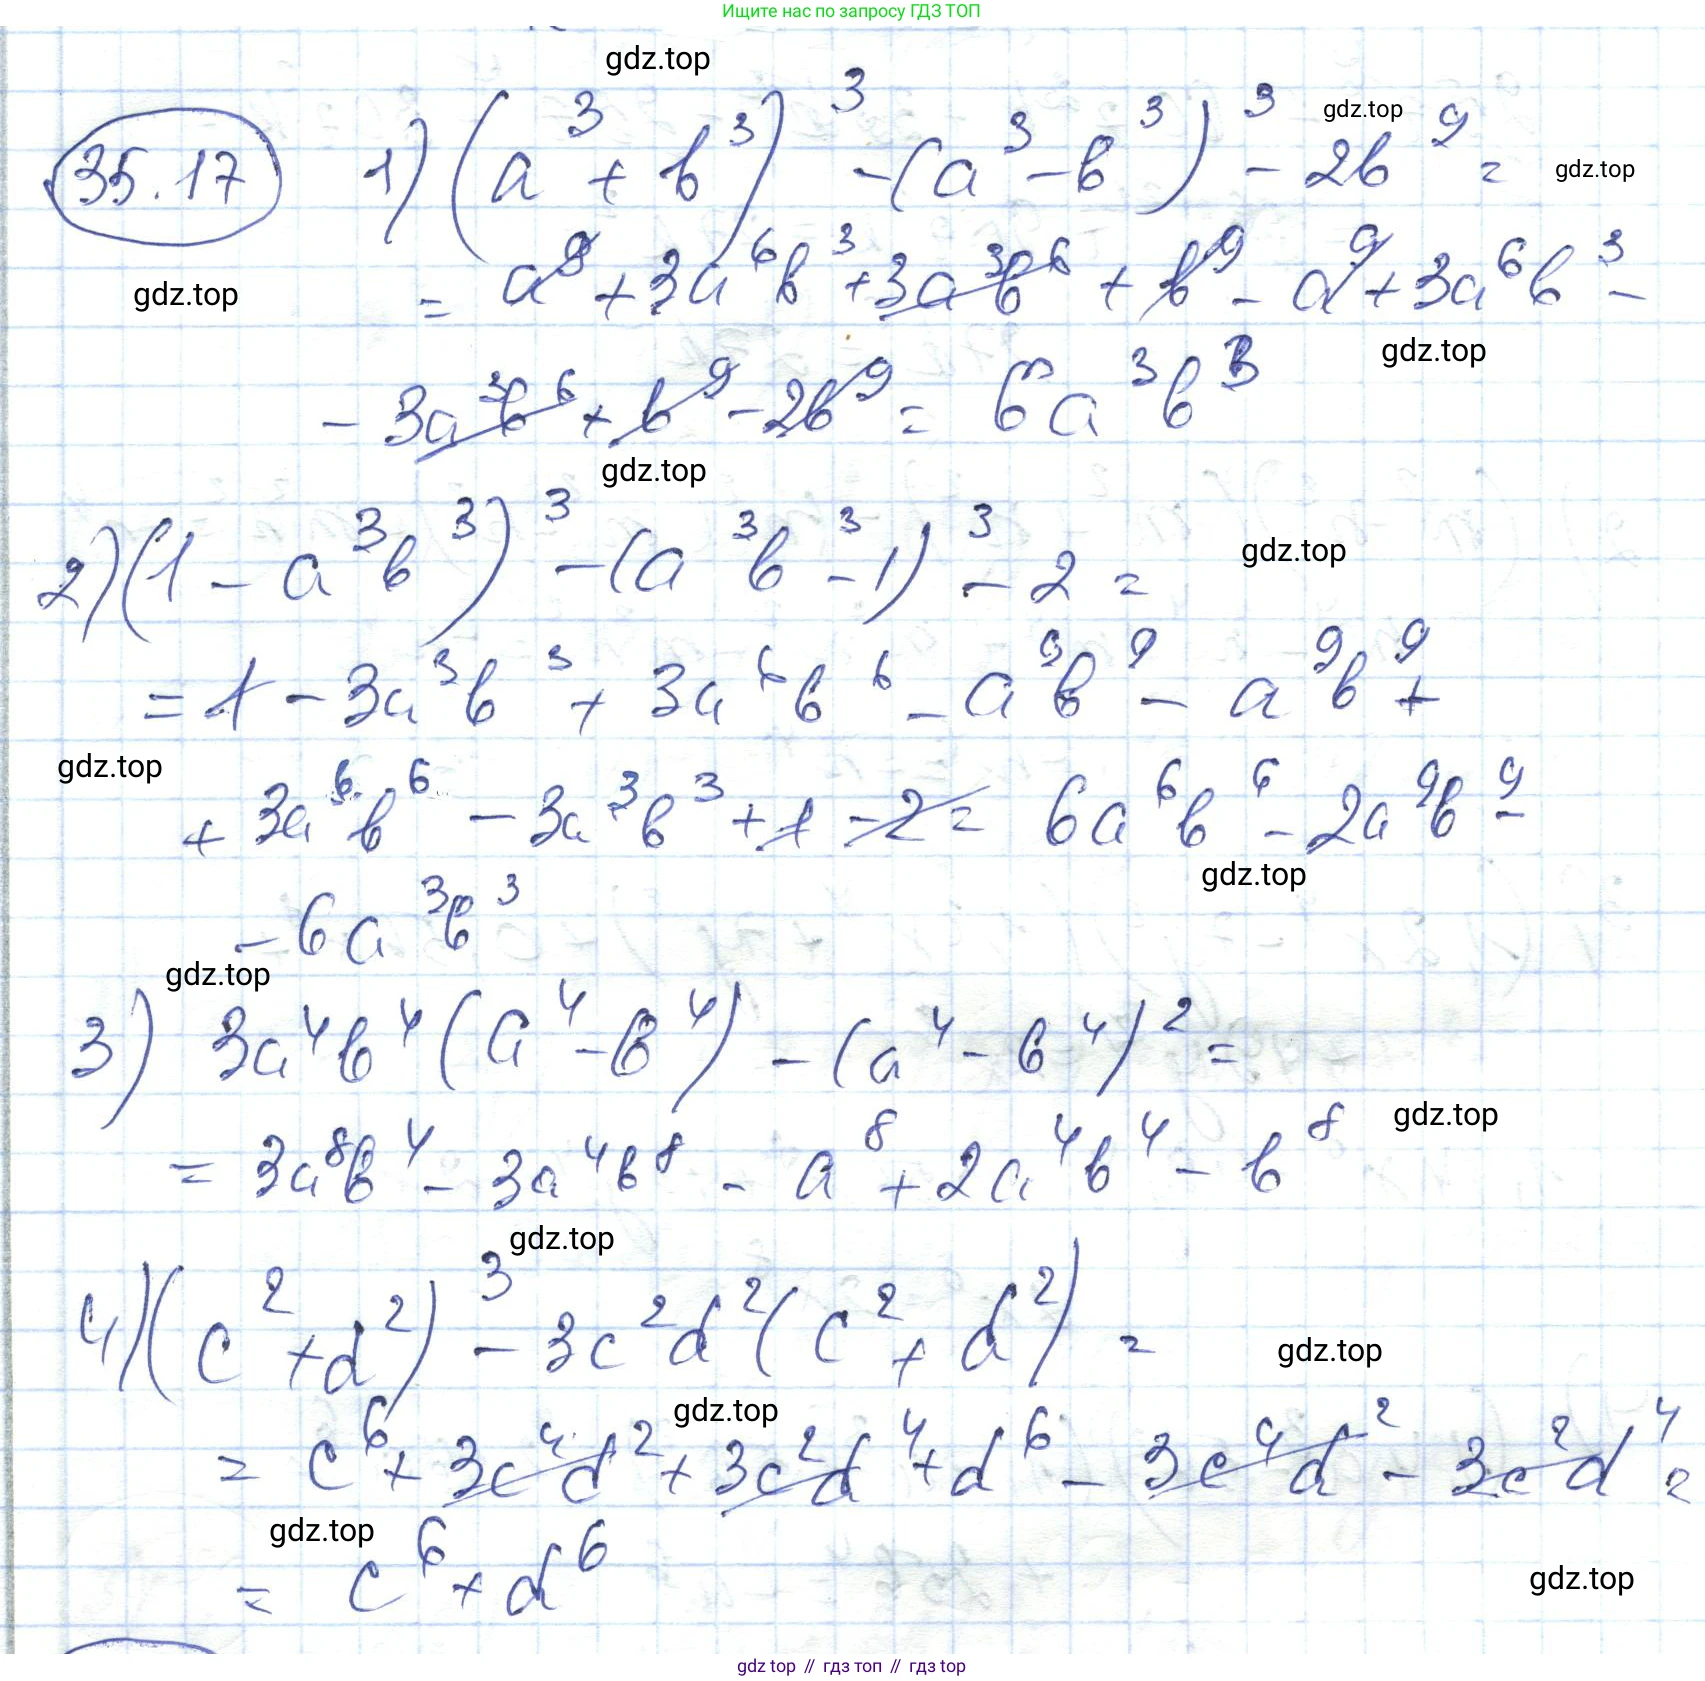 Ищите нас по запросу ГДЗ ТОП
gdz.top
35.17 1) (a³ + b³)³ - (a³ - b³)³ - 2b⁹ = gdz.top gdz.top
= a⁹ + 3a⁶b³ + 3a³b⁶ + b⁹ - a⁹ + 3a⁶b³ -
gdz.top
gdz.top
- 3a³b⁶ + b⁹ - 2b⁹ = 6a³b³
gdz.top
2) (1 - a³b³)³ - (a³b³ - 1)³ - 2 = gdz.top
= 1 - 3a³b³ + 3a⁶b⁶ - a⁹b⁹ - a⁹b⁹ +
gdz.top
+ 3a⁶b⁶ - 3a³b³ + 1 - 2 = 6a⁶b⁶ - 2a⁹b⁹ -
gdz.top
- 6a³b³
gdz.top
3) 3a⁴b⁴(a⁴ - b⁴) - (a⁴ - b⁴)² =
gdz.top
= 3a⁸b⁴ - 3a⁴b⁸ - a⁸ + 2a⁴b⁴ - b⁸
gdz.top
4) (c² + d²)³ - 3c²d²(c² + d²) = gdz.top
gdz.top
= c⁶ + 3c⁴d² + 3c²d⁴ + d⁶ - 3c⁴d² - 3c²d⁴ =
gdz.top
= c⁶ + d⁶ gdz.top
gdz top // гдз топ // гдз top